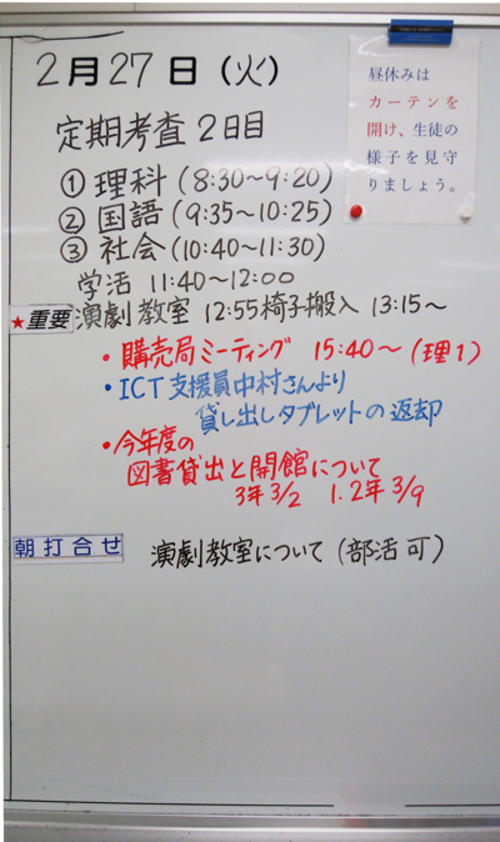 2月27日（火）
昼休みは
カーテンを
開け、生徒の
様子を見守
りましょう。
定期考査 2日目
① 理科（8:30～9:20）
② 国語（9:35～10:25）
③ 社会（10:40～11:30）
学活 11:40～12:00
★重要 演劇教室 12:55椅子搬入 13:15～
・購売局ミーティング 15:40～（理1）
・ICT支援員中村さんより
貸し出しタブレットの返却
・今年度の
図書貸出と開館について
3年3/2 1.2年3/9
朝打合せ 演劇教室について（部活可）